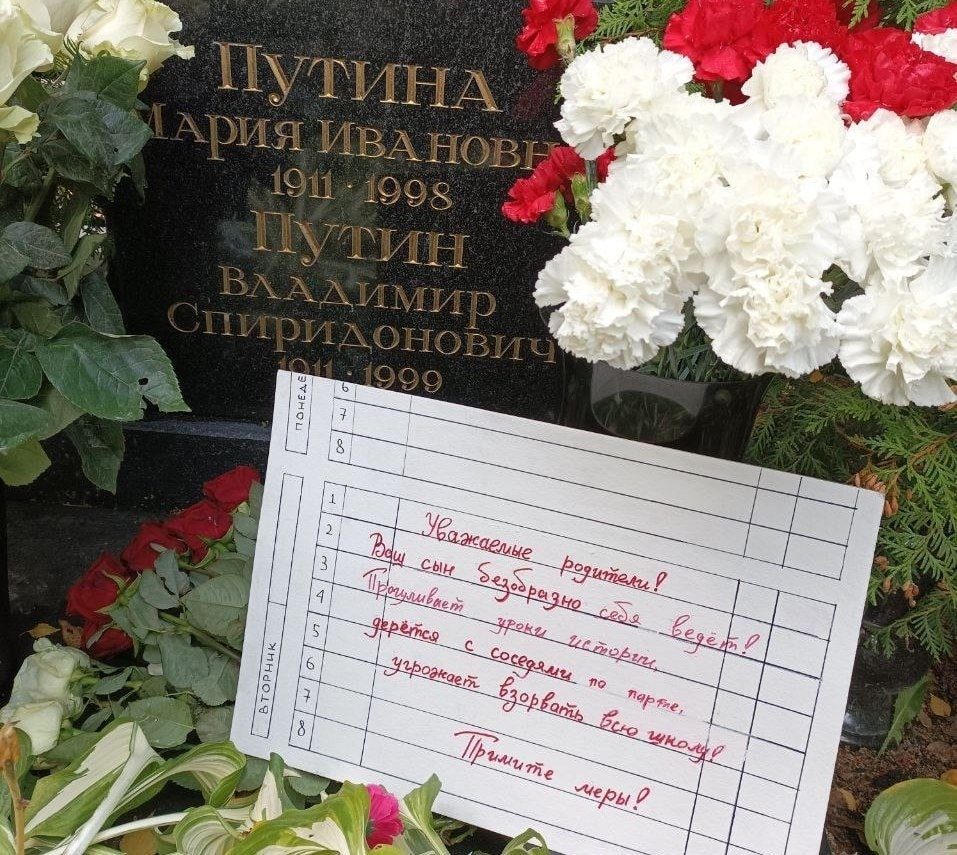 ПУТИНА
МАРИЯ ИВАНОВН
1911 · 1998
ПУТИН
ВЛАДИМИР
СПИРИДОНОВИЧ
1911 · 1999
ПОНЕДЕ
6
7
8
ВТОРНИК
1
2
3
4
5
6
7
8
Уважаемые родители!
Ваш сын безобразно себя ведёт!
Прогуливает уроки истории,
дерётся с соседями по парте,
угрожает взорвать всю школу!
Примите
меры!